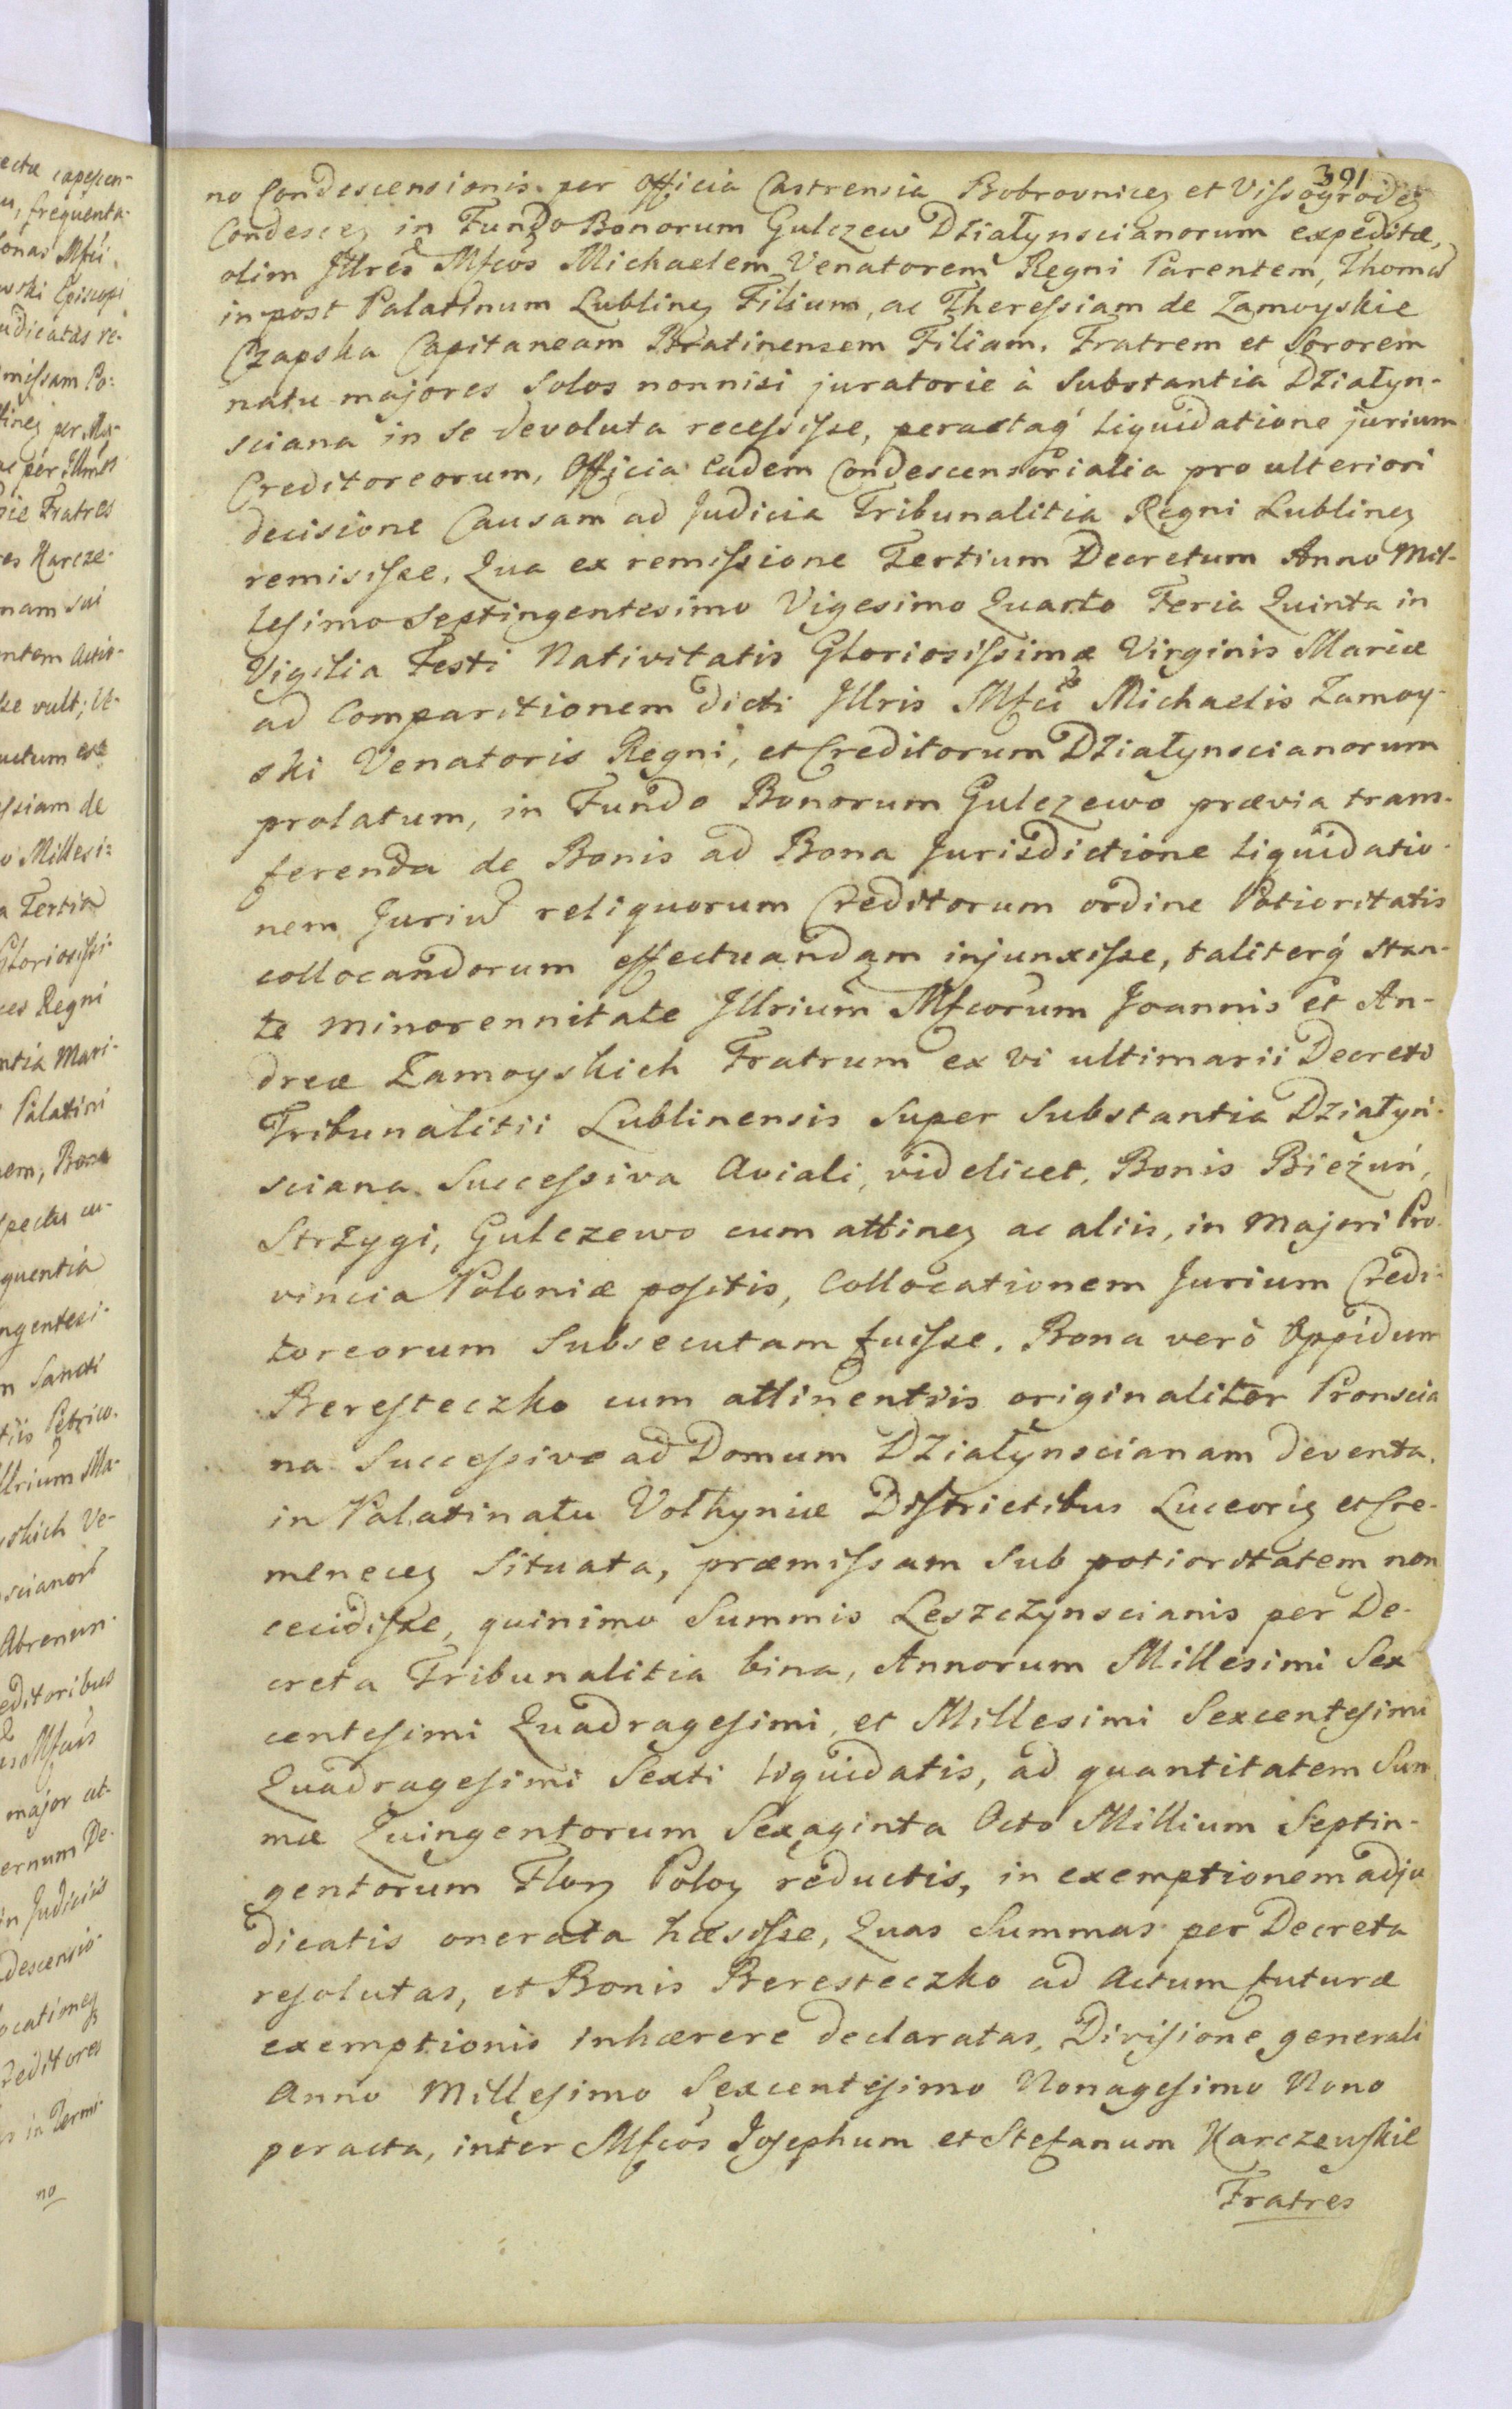 391
no Condescensionis per Officia Castrensia Bobrovnicen et Vissogroden
Condescen in Fundo Bonorum Gulczew Działynscianorum expeditæ,
olim Jllres Mfcos Michaelem Venatorem Regni Parentem, Thomam
in post Palatinum Lublinen Filium, ac Theressiam de Zamoyskie
Czapska Capitaneam Bratinensem Filiam, Fratrem et Sororem
natu majores solos nonnisi juratorie à Substantia Działyn-
sciana in se devoluta recessisse, peractaq́ liquidatione jurium
Creditoreorum, Officia eadem Condescensorialia pro ulteriori
decisione Causam ad Judicia Tribunalitia Regni Lublinen
remisisse, Qua ex remissione Tertium Decretum Anno Mil-
lesimo Septingentesimo Vigesimo Quarto Feria Quinta in
Vigilia Festi Nativitatis Gloriosissimæ Virginis Mariæ
ad Comparitionem dicti Jllris Mfci Michaelis Zamoy-
ski Venatoris Regni, et Creditorum Działynscianorum
prolatum, in Fundo Bonorum Gulczewo prævia trans-
ferenda de Bonis ad Bona Jurisdictione liquidatio-
nem Jurium reliquorum Creditorum ordine Potioritatis
collocandorum effectuandam injunxisse, taliterq́ stan-
te minorennitate Jllrium Mfcorum Joannis et An-
dreæ Zamoyskich Fratrum ex vi ultimarii Decreti
Tribunalitii Lublinensis super Substantia Działyn-
sciana Successiva Aviali, videlicet, Bonis Bieżuń,
Strzygi, Gulczewo cum attinen ac aliis, in Majori Pro-
vincia Poloniæ positis, Collocationem Jurium Credi-
toreorum Subsecutam fuisse. Bona verò Oppidum
Beresteczko cum attinentiis originaliter Pronscia
na Successive ad Domum Działynscianam deventa,
in Palatinatu Volhyniæ Districtibus Luceorien et Cre-
menecen Situata, præmissam sub potioritatem non
cecidisse, quinimo Summis Leszczynscianis per De-
creta Tribunalitia bina, Annorum Millesimi Sex
centesimi Quadragesimi, et Millesimi Sexcentesimi
Quadragesimi Sexti liquidatis, ad quantitatem Sum
mæ Quingentorum Sexaginta Octo Millium Septin-
gentorum Floren Polon reductis, in exemptionem adju
dicatis onerata hæsisse, Quas Summas per Decreta
resolutas, et Bonis Beresteczko ad Actum futuræ
exemptionis inhærere declaratas, Divisione generali
Anno Millesimo Sexcentesimo Nonagesimo Nono
peracta, inter Mfcos Josephum et Stefanum Karczewskie
Fratres